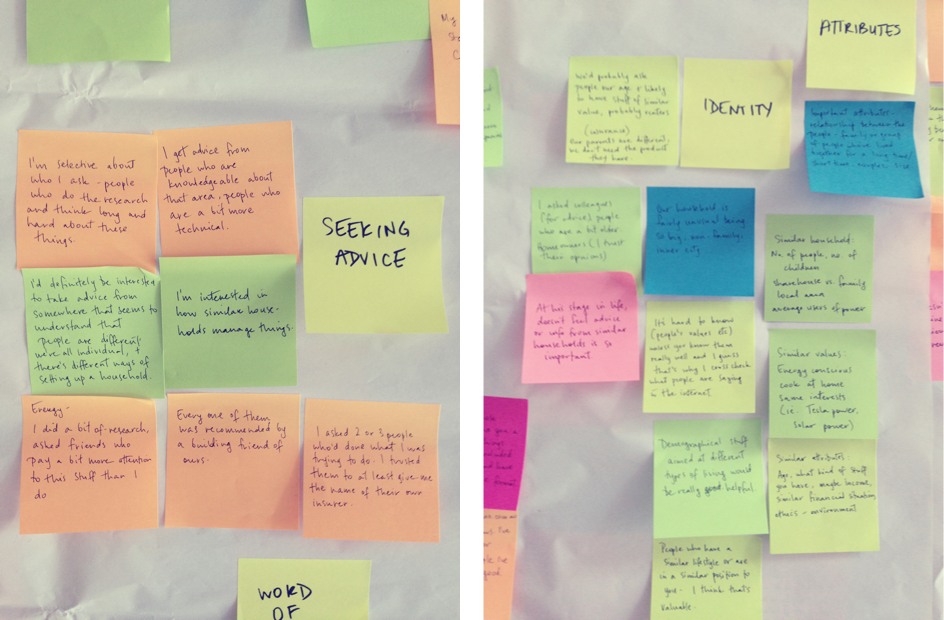 My
I'm selective about
who I ask - people
who do the research
and think long and
hard about these
things.
I get advice from
people who are
knowledgeable about
that area, people who
are a bit more
technical.
SEEKING
ADVICE
I'd definitely be interested
to take advice from
somewhere that seems to
understand that
people are different
we're all individual, +
there's different ways of
setting up a household.
I'm interested in
how similar house-
holds manage things.
Energy -
I did a bit of research,
asked friends who
pay a bit more attention
to this stuff than I
do
Every one of them
was recommended by
a building friend of
ours.
I asked 2 or 3 people
who'd done what I was
trying to do. I trusted
them to at least give me
the name of their own
insurer.
WORD
OF
ATTRIBUTES
We'd probably ask
people our age or likely
to have stuff of similar
value, probably renters
(insurance)
Our parents are different,
we don't need the product
they have.
IDENTITY
Important attributes -
relationship between the
people - family or group
of people who've lived
together for a long time/
short time - couples
I asked colleagues
(for advice) people
who are a bit older
homeowners (I trust
their opinions)
Our household is
fairly unusual being
so big, one family,
inner city
Similar household:
No. of people, no. of
children
sharehouse vs. family
local area
average users of power
At his stage in life,
doesn't feel advice
or info from similar
households is so
important
It's hard to know
(people's values etc)
unless you know them
really well and I guess
that's why I cross check
what people are saying
to the internet
Similar values:
Energy conscious
cook at home
same interests
(ie. Tesla power,
solar power)
Demographical stuff
aimed at different
types of living would
be really good helpful.
Similar attributes:
Age, what kind of stuff
you have, maybe income,
similar financial situation,
ethics - environment
People who have a
similar lifestyle or are
in a similar position to
you - I think that's
valuable.